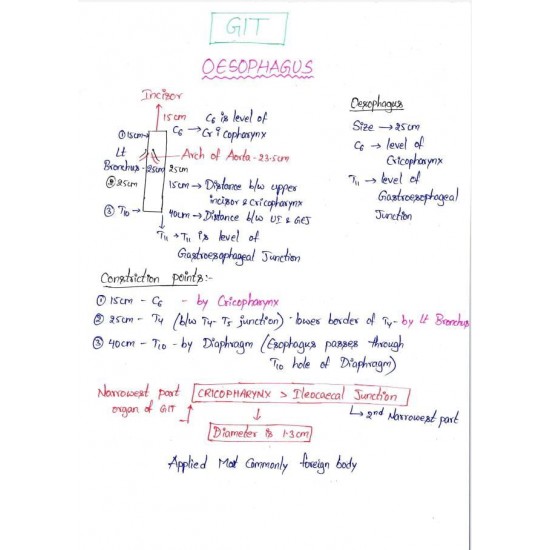 GIT
OESOPHAGUS
Incisor
15cm
C6 is level of
C6 → Cricopharynx
① 15cm
Lt
Bronchus - 25cm
Arch of Aorta - 23.5cm
25cm
② 25cm
15cm → Distance b/w upper
incisor & Cricopharynx
③ T10
40cm → Distance b/w UI & GEJ
T11 → T11 is level of
Gastroesophageal Junction
Oesophagus
Size → 25cm
C6 → level of
Cricopharynx
T11 → level of
Gastroesophageal
Junction
Constriction points:-
① 15cm - C6 - by Cricopharynx
② 25cm - T4 (b/w T4 - T5 junction) - lower border of T4 - by Lt Bronchus
③ 40cm - T10 - by Diaphragm (Esophagus passes through
T10 hole of Diaphragm)
Narrowest part
organ of GIT
CRICOPHARYNX > Ileocaecal Junction
↳ 2nd Narrowest part
Diameter is 1.3cm
Applied Most Commonly foreign body